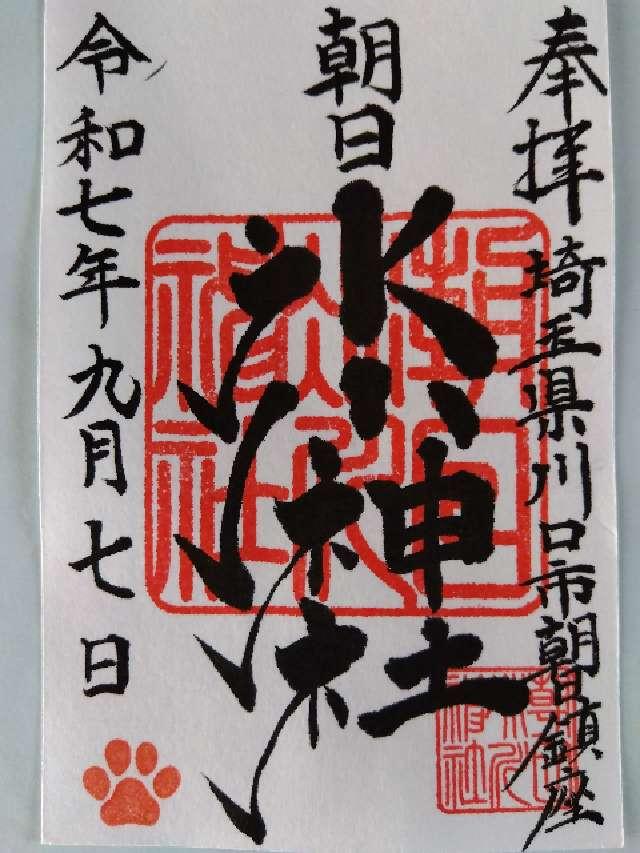 奉拝 埼玉県川口市朝日鎮座
朝日
氷川神社
令和七年九月七日